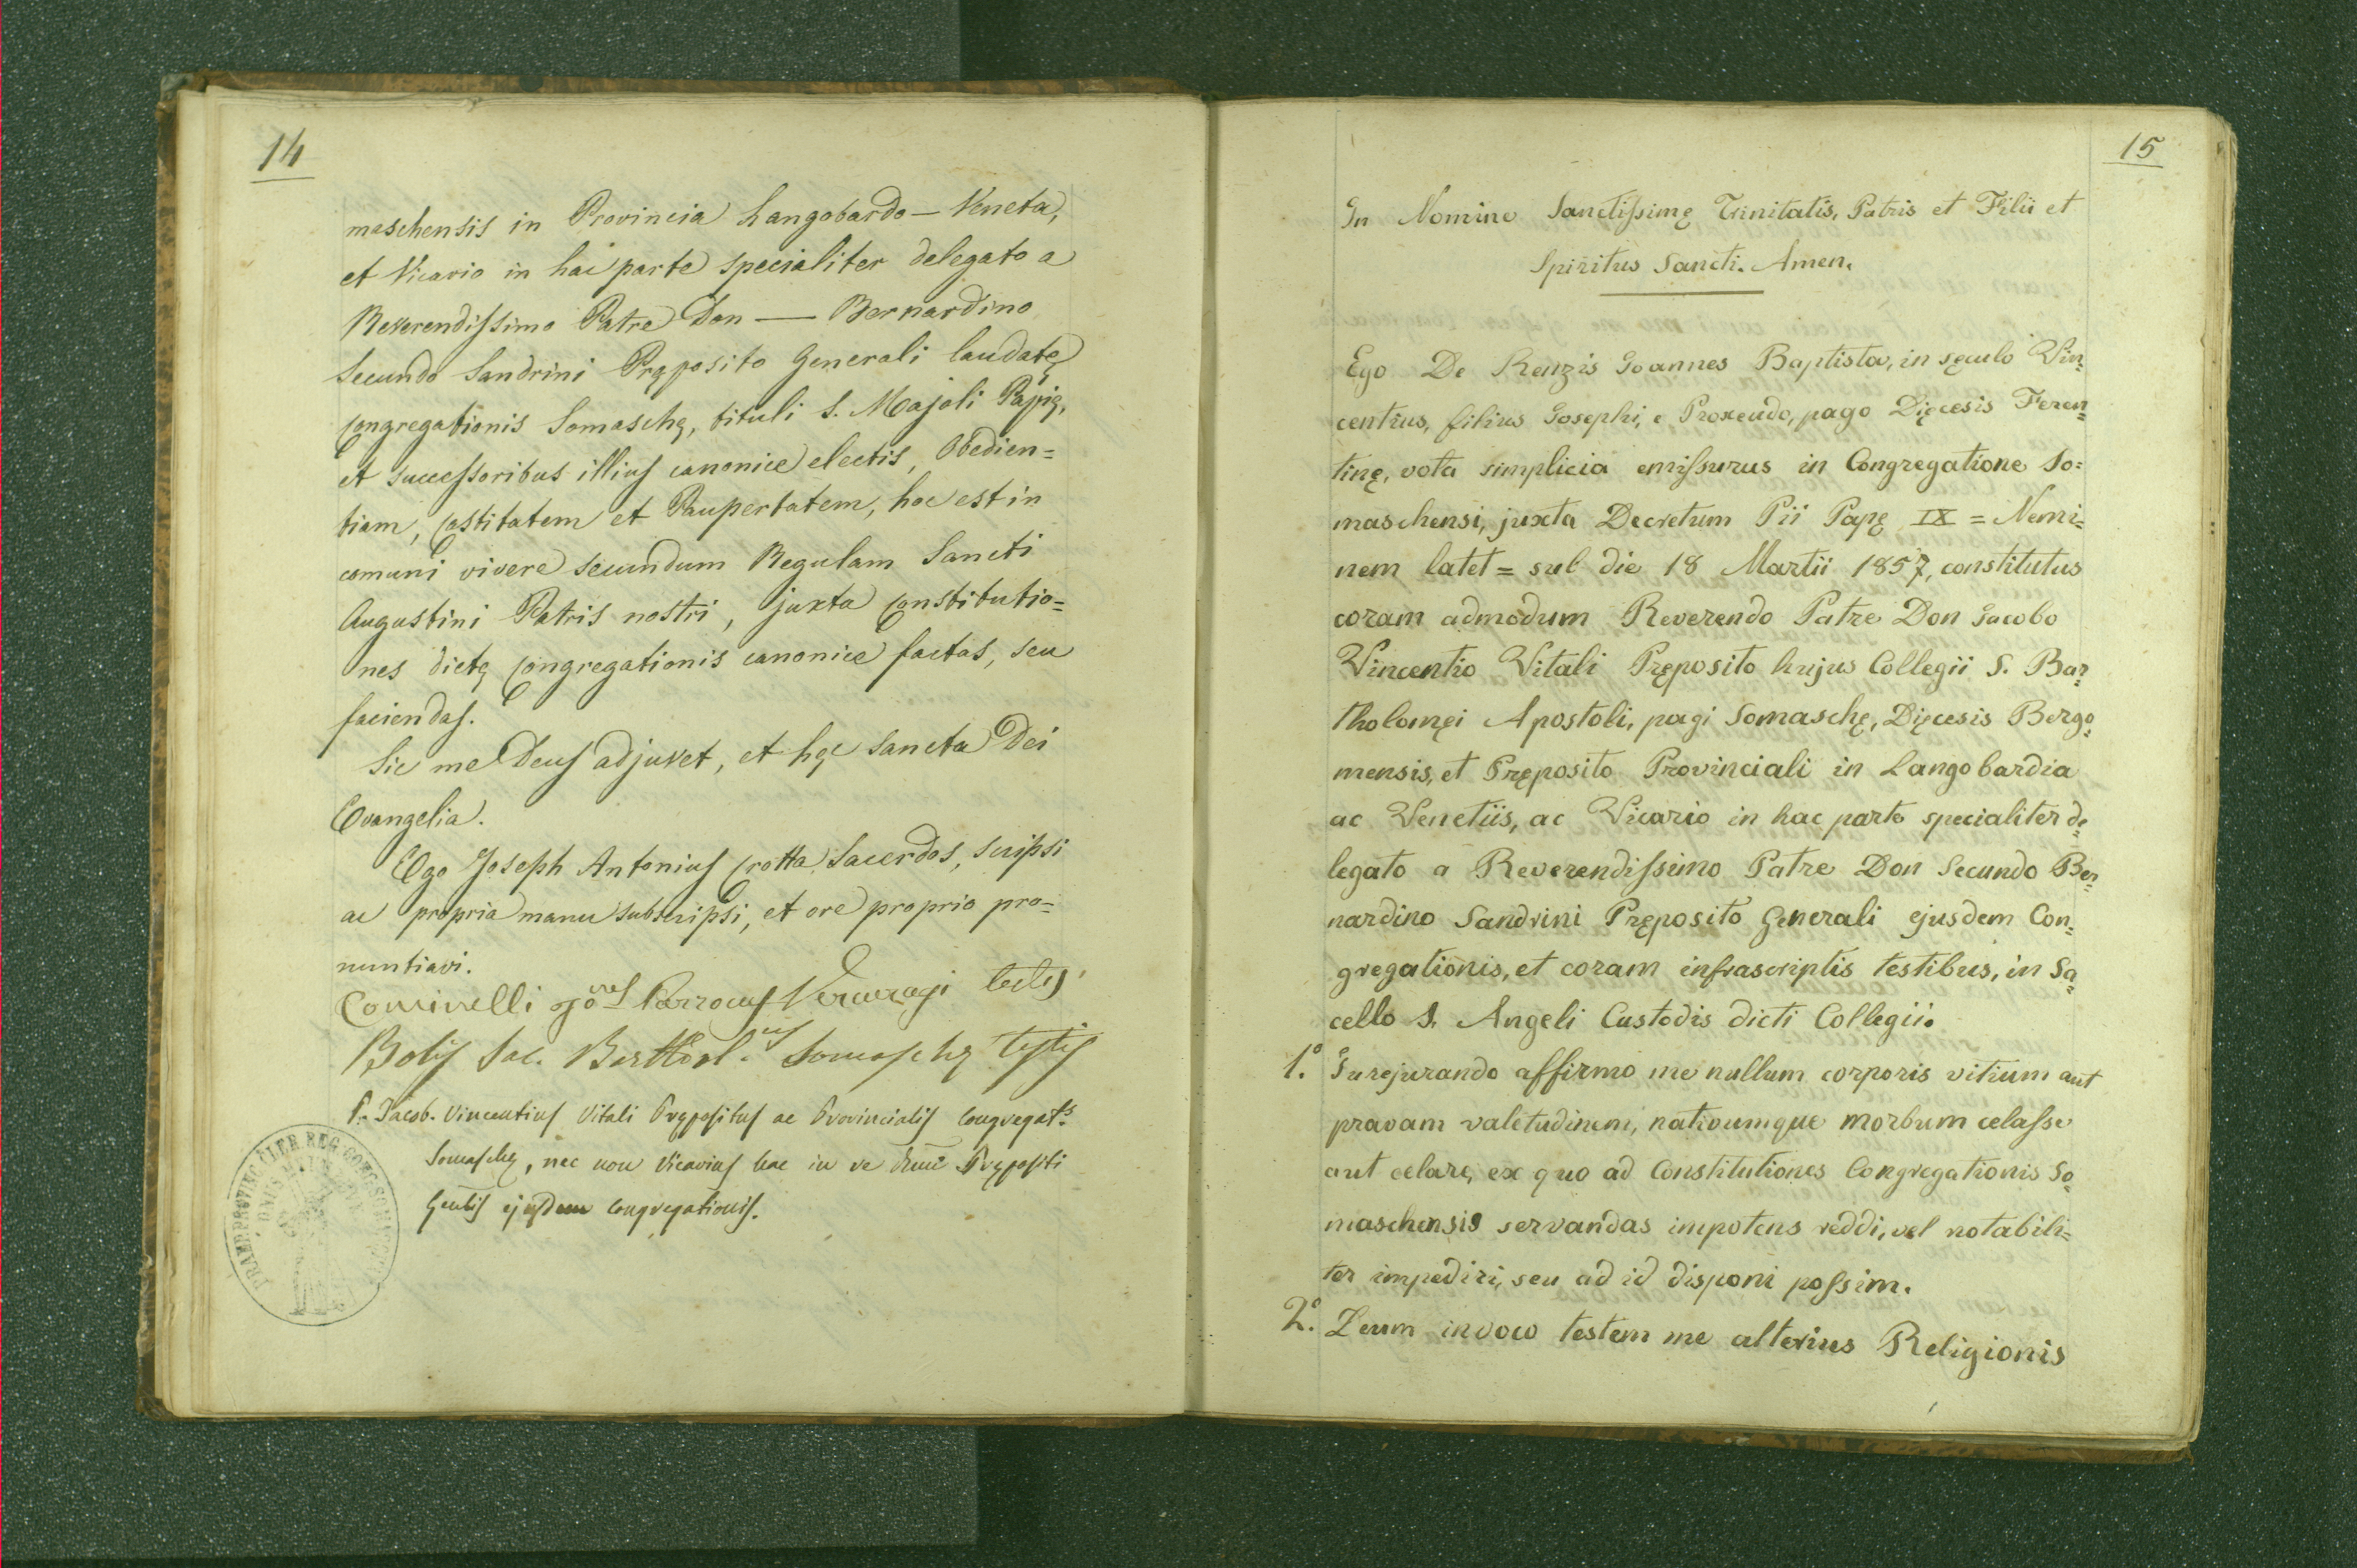 14
maschensis in Provincia Langobardo — Veneta,
et Vicario in hac parte specialiter delegato a
Reverendissimo Patre Don — Bernardino
Secundo Sandrini Pręposito Generali laudatę
Congregationis Somaschę, tituli S. Majoli Papię,
et successoribus illius canonice electis, Obedien=
tiam, Castitatem et Paupertatem, hoc est in
comuni vivere secundum Regulam Sancti
Augustini Patris nostri, juxta Constitutio=
nes dictę Congregationis canonice factas, seu
faciendas.
Sic me Deus adjuvet, et hęc Sancta Dei
Evangelia.
Ego Joseph Antonius Crotta Sacerdos, scripsi
ac propria manu subscripsi, et ore proprio pro=
nuntiavi.
Cominelli Parrocus Vercuragi testis
Bolis Sac. Barthol.us Somaschę testis
P. Jacob. Vincentius Vitali Prępositus ac Provincialis Congregat.s
Somaschę, nec non Vicarius hac in re Rmi Prępositi
Gentis ejusdem Congregationis.
15
In Nomine Sanctissimę Trinitatis, Patris et Filii et
Spiritus Sancti. Amen.
Ego De Renzis Joannes Baptista, in sęculo Vin=
centius, filius Josephi, e Proxeudo, pago Dięcesis Feren=
tinę, vota simplicia emissurus in Congregatione So=
maschensi, juxta Decretum Pii Papę IX = Nemi=
nem latet = sub die 18 Martii 1857, constitutus
coram admodum Reverendo Patre Don Jacobo
Vincentio Vitali Pręposito hujus Collegii S. Bar=
tholomęi Apostoli, pagi Somaschę, Dięcesis Bergo=
mensis, et Pręposito Provinciali in Langobardia
ac Venetiis, ac Vicario in hac parte specialiter de=
legato a Reverendissimo Patre Don Secundo Ber=
nardino Sandrini Pręposito Generali ejusdem Con=
gregationis, et coram infrascriptis testibus, in Sa=
cello S. Angeli Custodis dicti Collegii.
1.° Jurejurando affirmo me nullum corporis vitium aut
pravam valetudinem, nativumque morbum celasse
aut celare, ex quo ad Constitutiones Congregationis So=
maschensis servandas impotens reddi, vel notabili=
ter impediri, seu ad id disponi possim.
2.° Deum invoco testem me alterius Religionis